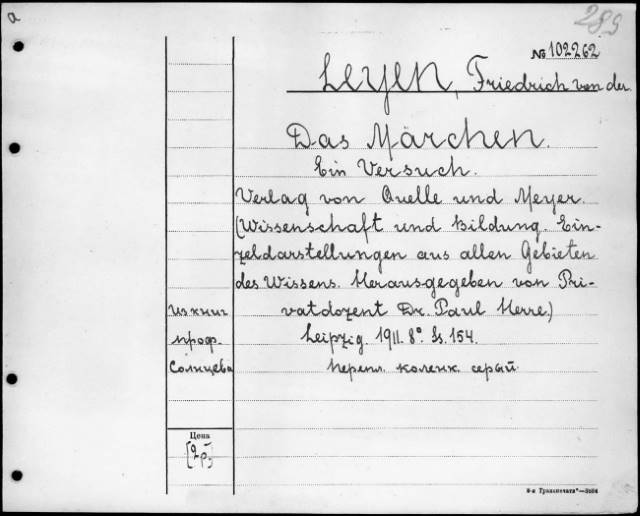 a
289
№ 102262
Leyen, Friedrich von der.
Das Märchen.
Ein Versuch.
Verlag von Quelle und Meyer.
(Wissenschaft und Bildung. Ein-
zeldarstellungen aus allen Gebieten
des Wissens. Herausgegeben von Pri-
vatdozent Dr. Paul Herre.)
Leipzig. 1911. 8° Ss. 154.
Перепл. коленк. серый.
Из книг
проф.
Солнцева
Цена
[2р.]